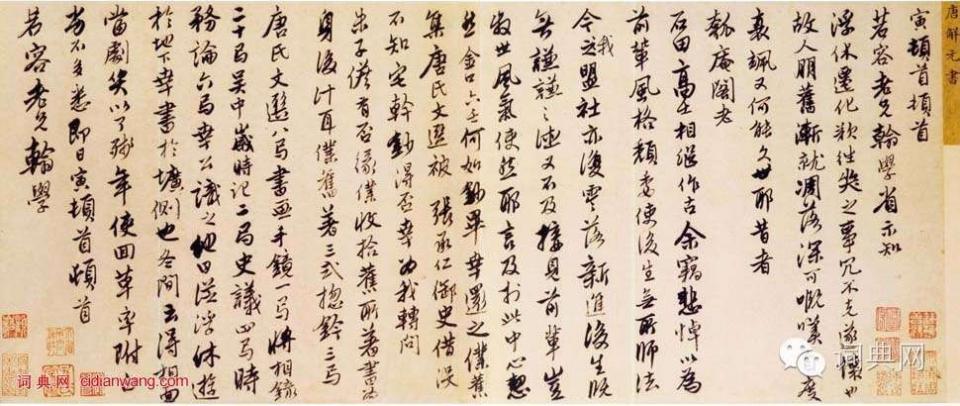 唐解元書
寅頓首頓首
若容老兄翰學省示知
浮休遷化欲往奠之事冗不克遂懷也
故人朋舊漸就凋落深可嘅嘆度
衰颯又何能久世耶昔者
瓠庵閣老
石田高士相繼作古余竊悲悼以為
前輩風格頹委使後生無所師法
今之我盟社亦復零落新進後生既
無謙謙之德又不及接見前輩豈
衰世風氣使然耶言及於此中心愬
然金口六壬何如鈔畢幸還之僕舊
集唐氏文選被張承仁御史借沒
不知宅幹鈔得否幸為我轉問
朱子儋有否緣僕收拾舊所著書為
身後計耳僕舊著三式總鈐三卷
唐氏文選八卷書畫手鏡一卷將相錄
二十卷吳中歲時記二卷史議四卷時
務論六卷幸公識之他日從浮休遊
於地下幸書於壙側也冬間去得相面
當劇笑以了殘年使回草率附此
尚不多悉即日寅頓首頓首
若容老兄翰學
词典网 cidianwang.com
词典网